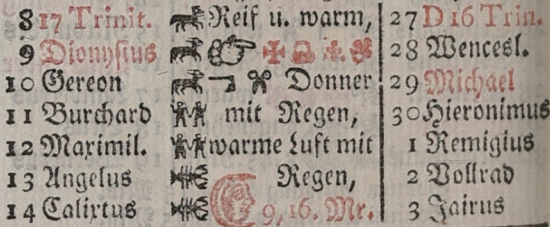 8 17 Trinit. Reif u. warm, 27 D 16 Trin.
9 Dionysius 28 Wencesl.
10 Gereon Donner 29 Michael
11 Burchard mit Regen, 30 Hieronimus
12 Maximil. warme Luft mit 1 Remigius
13 Angelus Regen, 2 Vollrad
14 Calixtus 9, 16. Mr. 3 Jairus